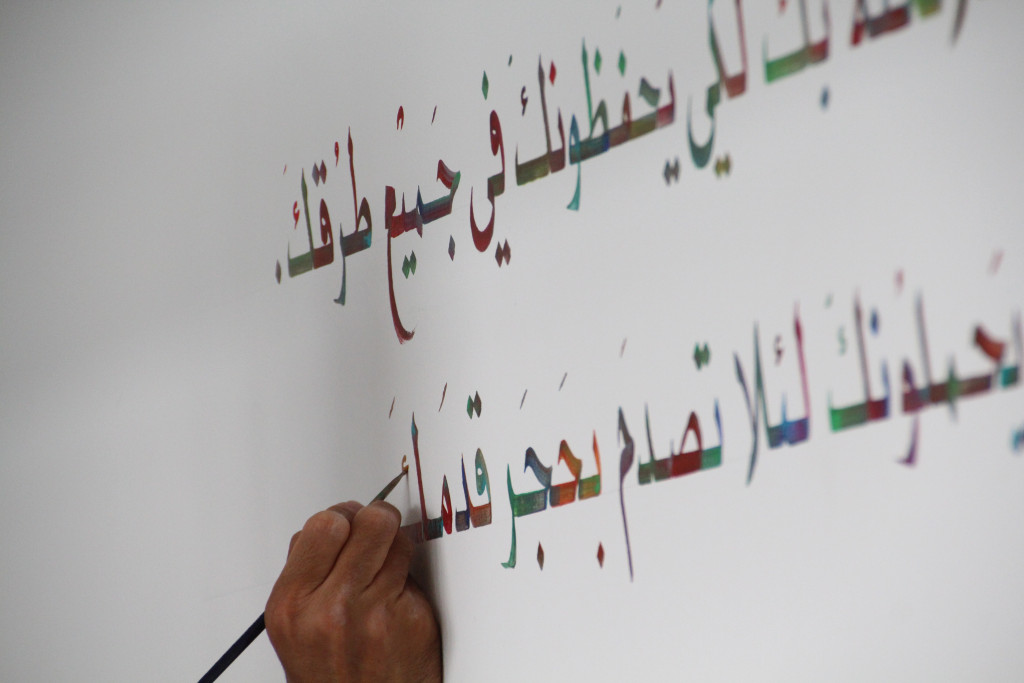 بك لكي يحفظونك في جَميع طُرُقك.
يحملونك لئلا تصدم بحَجَر قدَمَك